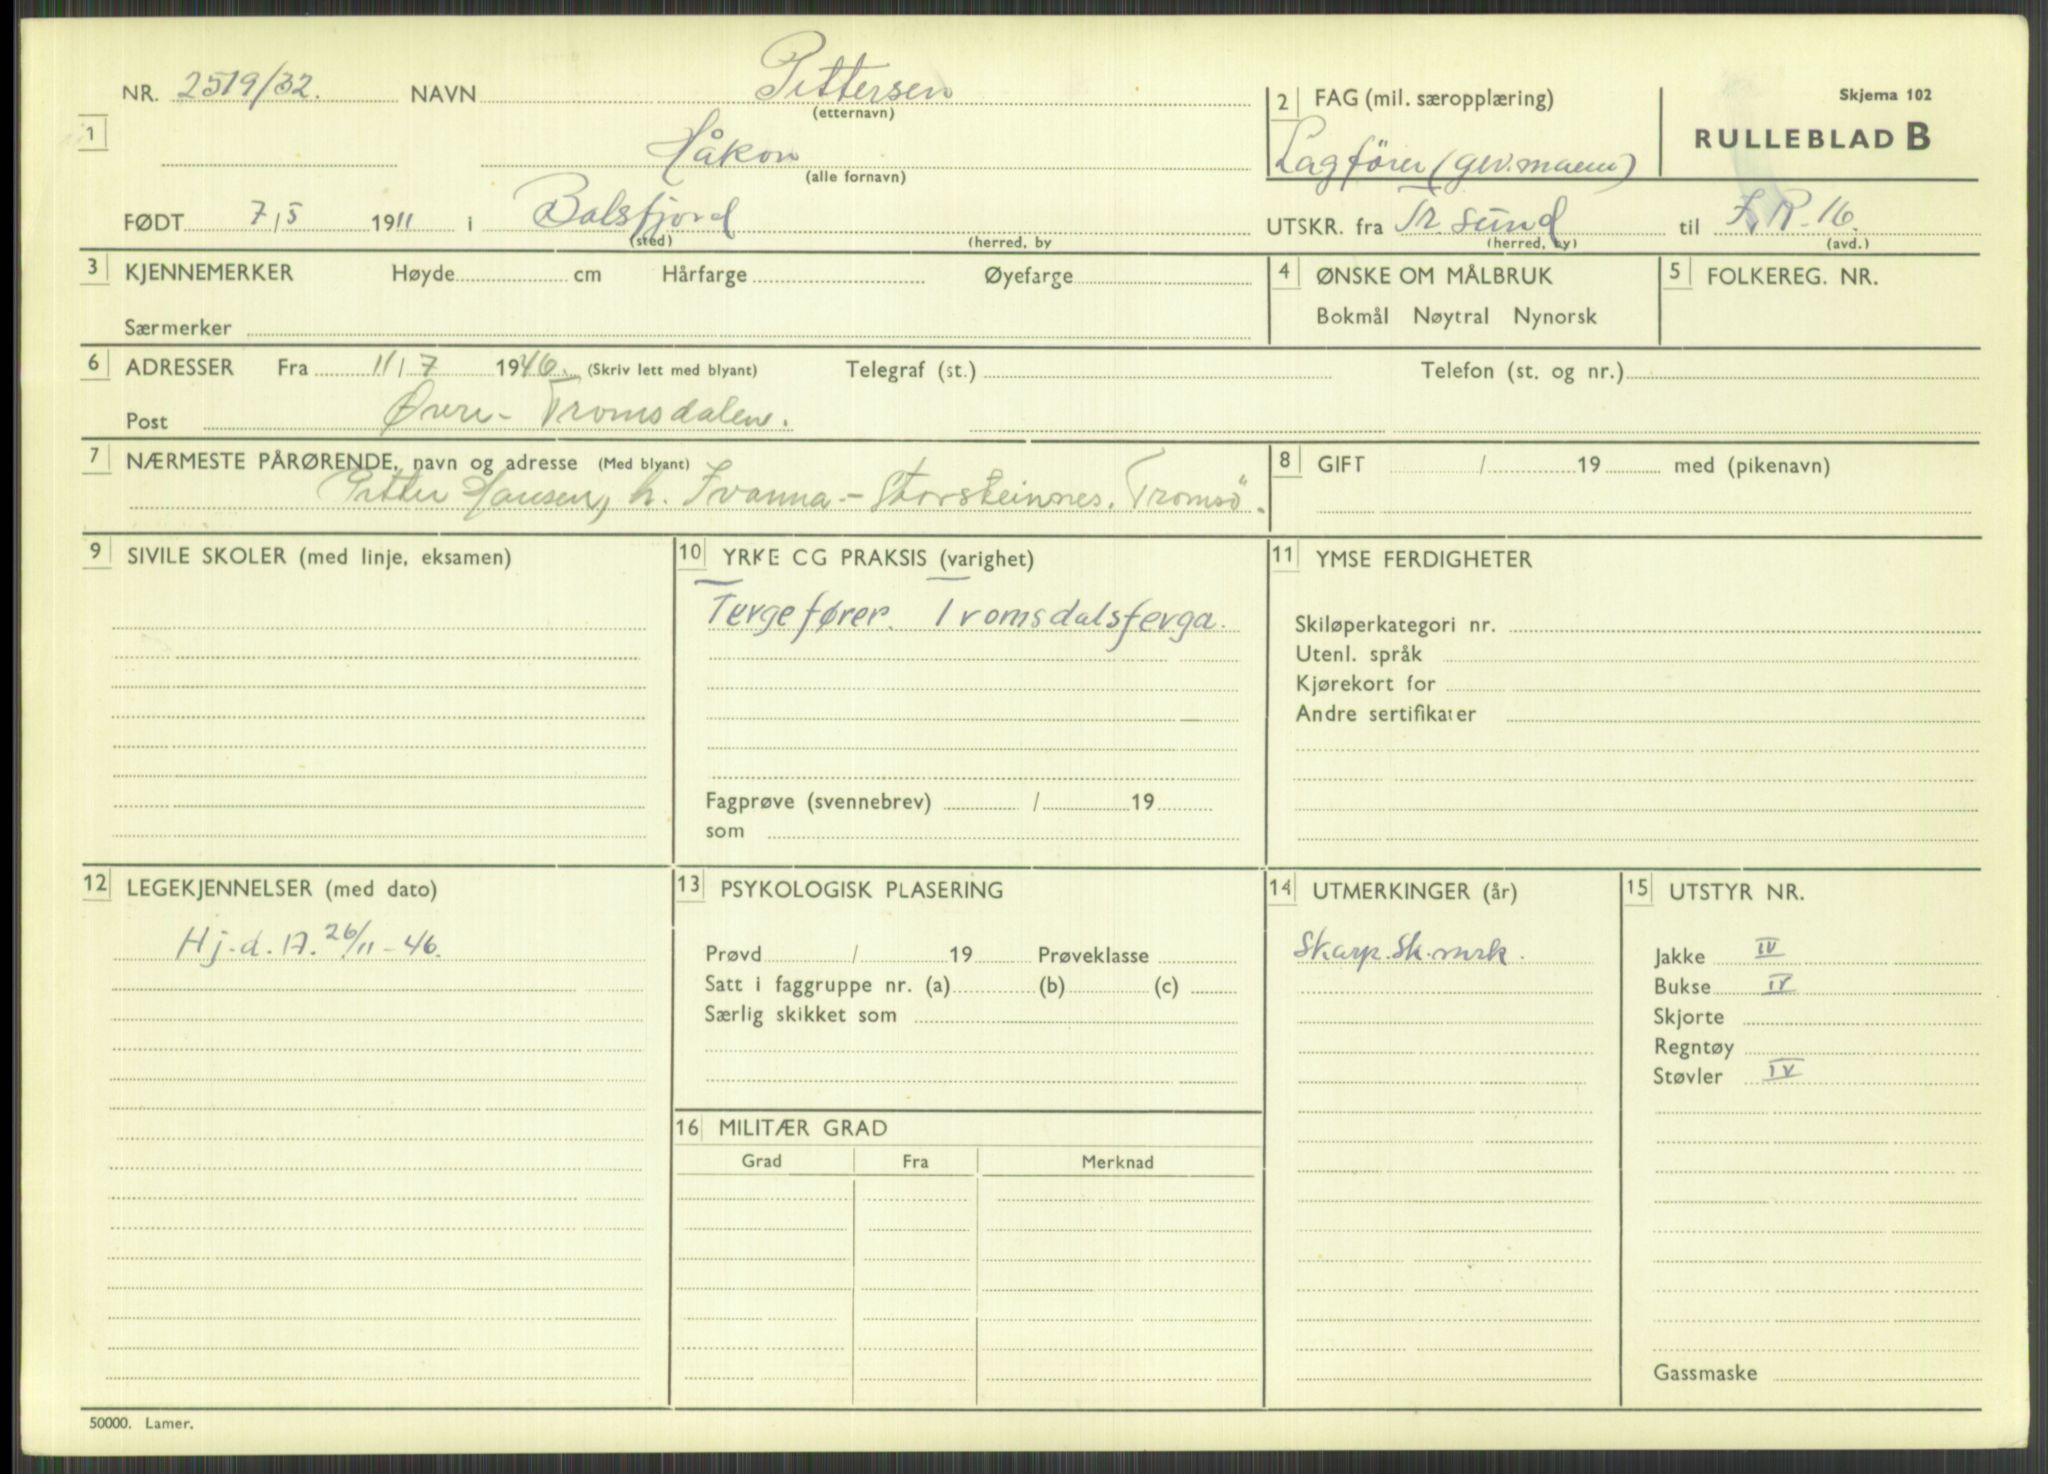 NR. 2519/32. NAVN Pettersen
(etternavn)
2 FAG (mil. særopplæring)
Skjema 102
RULLEBLAD B
1
Håkon
(alle fornavn)
Lagfører (gev.mann)
FØDT 7/5 1911 i Balsfjord
(sted) (herred, by
UTSKR. fra Tr.sund til I.R.16.
(herred, by) (avd.)
3 KJENNEMERKER Høyde cm Hårfarge Øyefarge
Særmerker
4 ØNSKE OM MÅLBRUK
Bokmål Nøytral Nynorsk
5 FOLKEREG. NR.
6 ADRESSER Fra 11/7 1946. (Skriv lett med blyant) Telegraf (st.) Telefon (st. og nr.)
Post Øvre - Tromsdalen.
7 NÆRMESTE PÅRØRENDE, navn og adresse (Med blyant)
Petter Hansen, h. Ivanna - Storsteinnes. Tromsö.
8 GIFT / 19 med (pikenavn)
9 SIVILE SKOLER (med linje, eksamen)
10 YRKE CG PRAKSIS (varighet)
Tergefører. Tromsdalsferga.
Fagprøve (svennebrev) / 19
som
11 YMSE FERDIGHETER
Skiløperkategori nr.
Utenl. språk
Kjørekort for
Andre sertifikater
12 LEGEKJENNELSER (med dato)
Hj.d.A. 26/11-46.
13 PSYKOLOGISK PLASERING
Prøvd / 19 Prøveklasse
Satt i faggruppe nr. (a) (b) (c)
Særlig skikket som
14 UTMERKINGER (år)
Skarp.sk.mrk.
15 UTSTYR NR.
Jakke IV
Bukse IV
Skjorte
Regntøy
Støvler IV
Gassmaske
16 MILITÆR GRAD
Grad Fra Merknad
50000. Lamer.